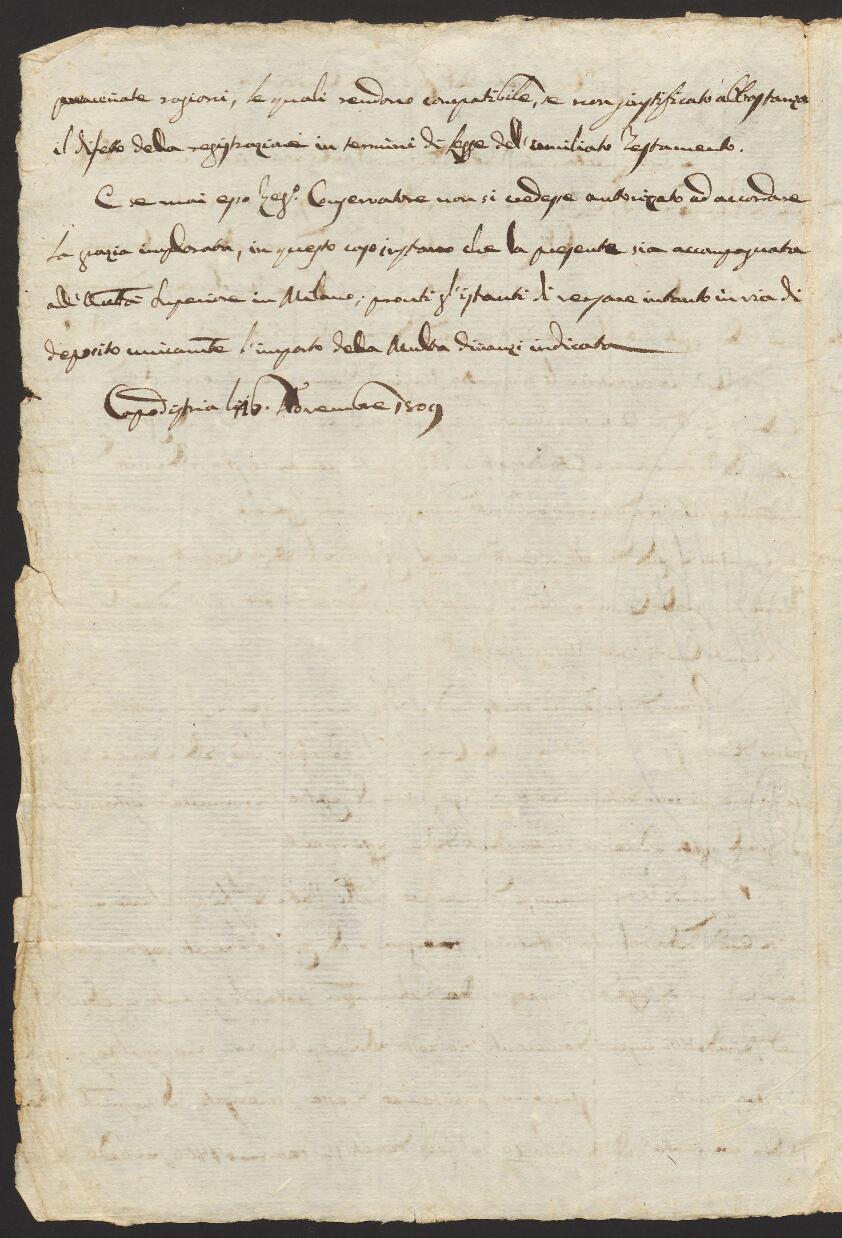 ragioni, le quali rendono compatibile, se non justificato abbastanza
il difeto della registrazione in termini di legge del sumiliato Testamento.
E se mai esso Reg.º Conservatore non si vedesse autorizato ad accordare
la grazia implorata, in questo caso instano che la presente sia accompagnata
all' Autta Superiore in Milano; pronti gl' istanti di versare intanto in via di
deposito unicamte l' importo della Multa dinanzi indicata
Capodistria li 16. Novembre 1809